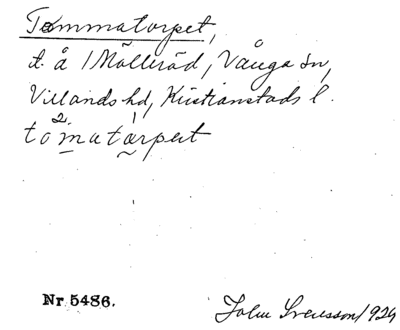 Tommatorpet,
t. å 1 Mölleröd, Vånga sn,
Villands hd, Kristianstads l.
to2matarpert
Nr 5486.
John Svensson 1924